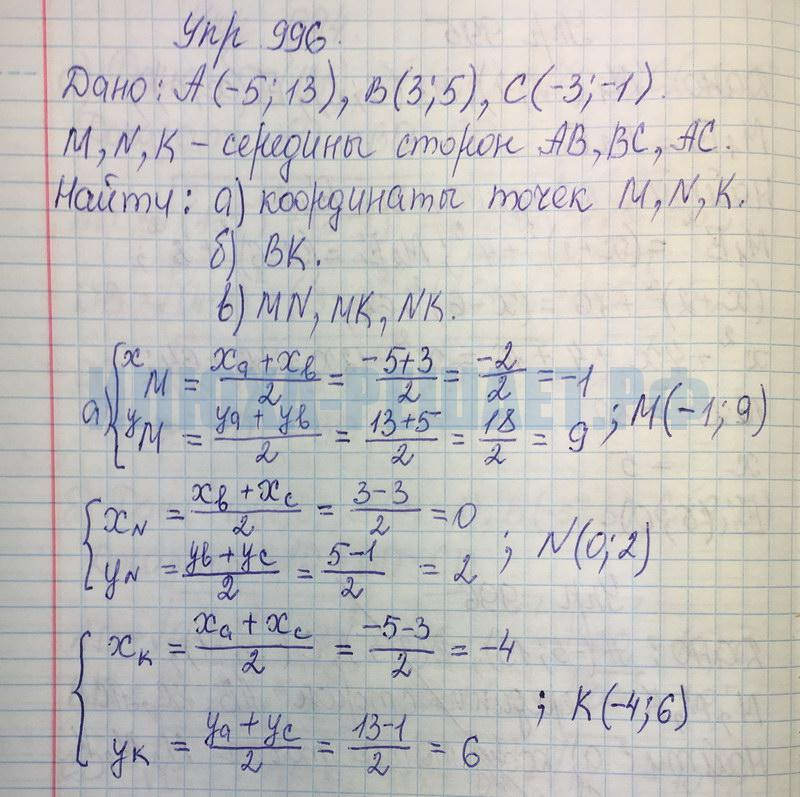 Упр 996.
Дано: A(-5;13), B(3;5), C(-3;-1).
M, N, K - середины сторон AB, BC, AC.
Найти: а) координаты точек M, N, K.
б) BK.
в) MN, MK, NK.
а) { x M = (xa + xb)/2 = (-5+3)/2 = -2/2 = -1
y M = (ya + yb)/2 = (13+5)/2 = 18/2 = 9 ; M(-1;9)
{ xN = (xb + xc)/2 = (3-3)/2 = 0
yN = (yb + yc)/2 = (5-1)/2 = 2 ; N(0;2)
{ xK = (xa + xc)/2 = (-5-3)/2 = -4
yK = (ya + yc)/2 = (13-1)/2 = 6 ; K(-4;6)